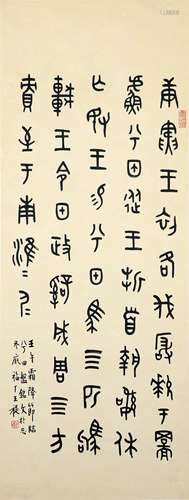 庚寅王初各伐玁狁于
兮甲從王折首執訊休
亡敃王易兮甲馬四匹駒
車王令甲政司成周四方
責至于南淮淮夷
壬午霜降節臨
兮田盤銘文於
福厂王禔